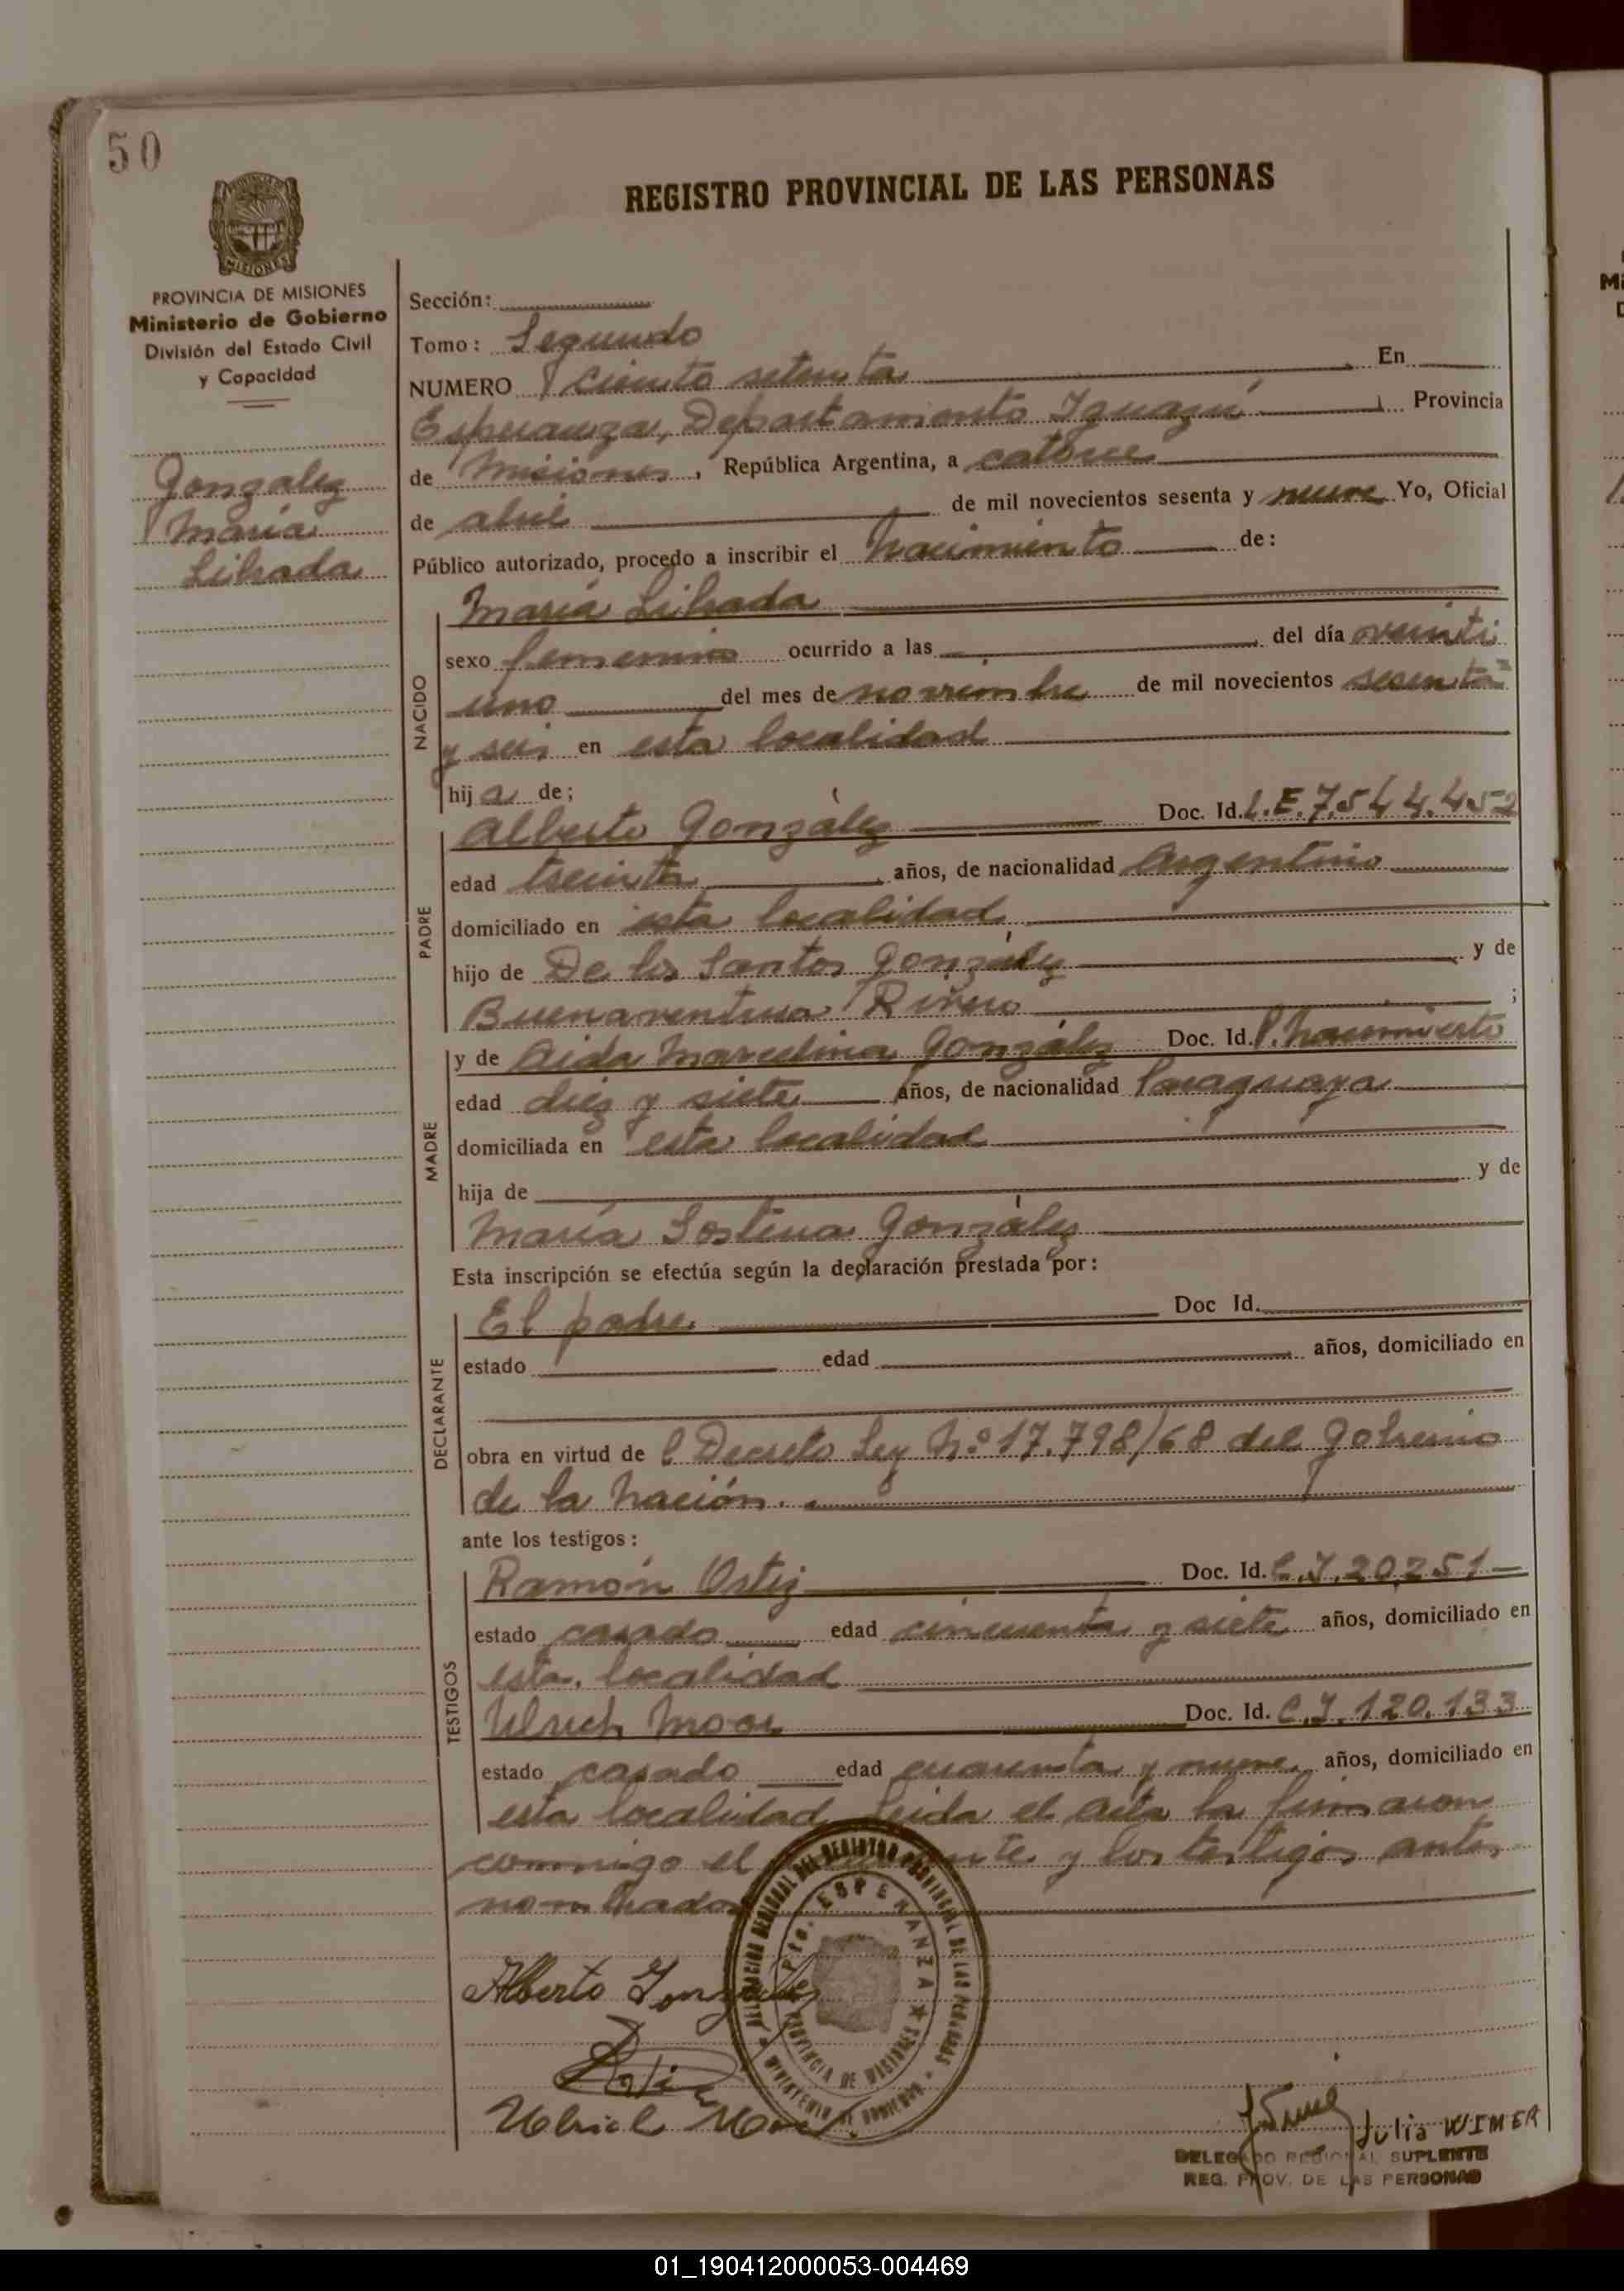 50
REGISTRO PROVINCIAL DE LAS PERSONAS
PROVINCIA DE MISIONES
Ministerio de Gobierno
División del Estado Civil
y Capacidad
Gonzalez
María
Librada
Sección:
Tomo: Segundo
NUMERO ciento setenta En
Esperanza, Departamento Iguazú Provincia
de Misiones, República Argentina, a catorce
de abril de mil novecientos sesenta y nueve Yo, Oficial
Público autorizado, procedo a inscribir el nacimiento de:
NACIDO
María Librada
sexo femenino ocurrido a las del día veinti
uno del mes de noviembre de mil novecientos sesenta
y seis en esta localidad
hija de;
PADRE
Alberto González Doc. Id. L.E. 7.544.452
edad treinta años, de nacionalidad Argentino
domiciliado en esta localidad
hijo de De los Santos González y de
Buenaventura ;
MADRE
y de Aida Marcelina González Doc. Id. P. nacimiento
edad diez y siete años, de nacionalidad Paraguaya
domiciliada en esta localidad
hija de y de
María Sostina González
Esta inscripción se efectúa según la declaración prestada por:
DECLARANTE
El padre Doc Id.
estado edad años, domiciliado en
obra en virtud de l Decreto Ley Nº 17.798/68 del Gobierno
de la Nación.
ante los testigos:
TESTIGOS
Ramón Ortiz Doc. Id. C.I. 20.251
estado casado edad cincuenta y siete años, domiciliado en
esta localidad
Ulrich Moor Doc. Id. C.I. 120.133
estado casado edad cuarenta y nueve años, domiciliado en
esta localidad Leida el acta la firmaron
conmigo el y los testigos antes
nombrados
Alberto Gonzalez
DELEGACION REGIONAL DEL REGISTRO PROVINCIAL DE LAS PERSONAS
Pto. ESPERANZA
PROVINCIA DE MISIONES
MINISTERIO DE GOBIERNO
Ortiz
Ulrich Moor
Julia WIMER
DELEGADO REGIONAL SUPLENTE
REG. PROV. DE LAS PERSONAS
01_190412000053-004469